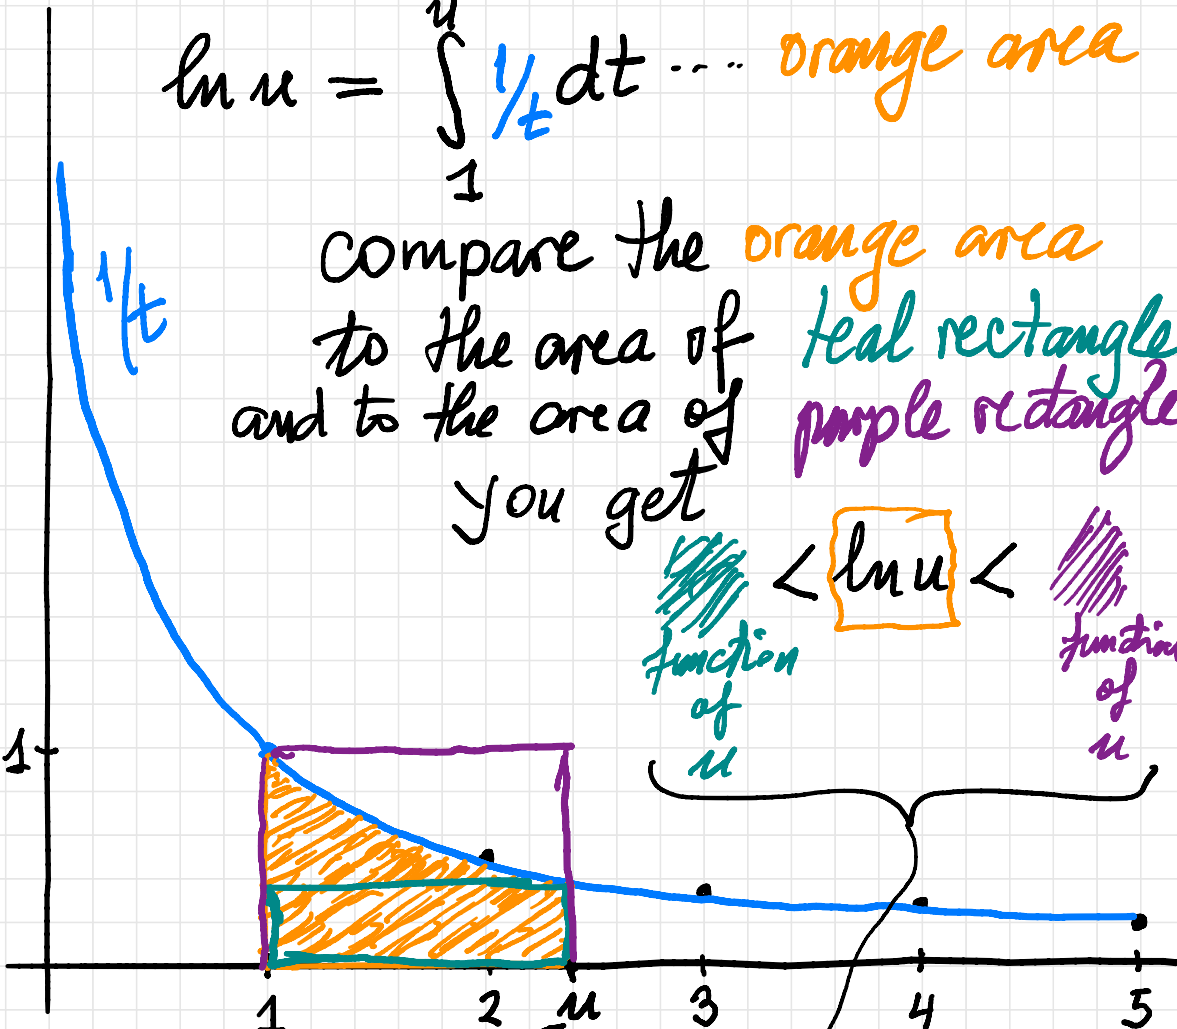 ln u = ∫₁ᵘ 1/t dt ···· orange area
1/t
compare the orange area
to the area of teal rectangle
and to the area of purple rectangle
you get
< ln u <
function of u
function of u
1
1 2 u 3 4 5